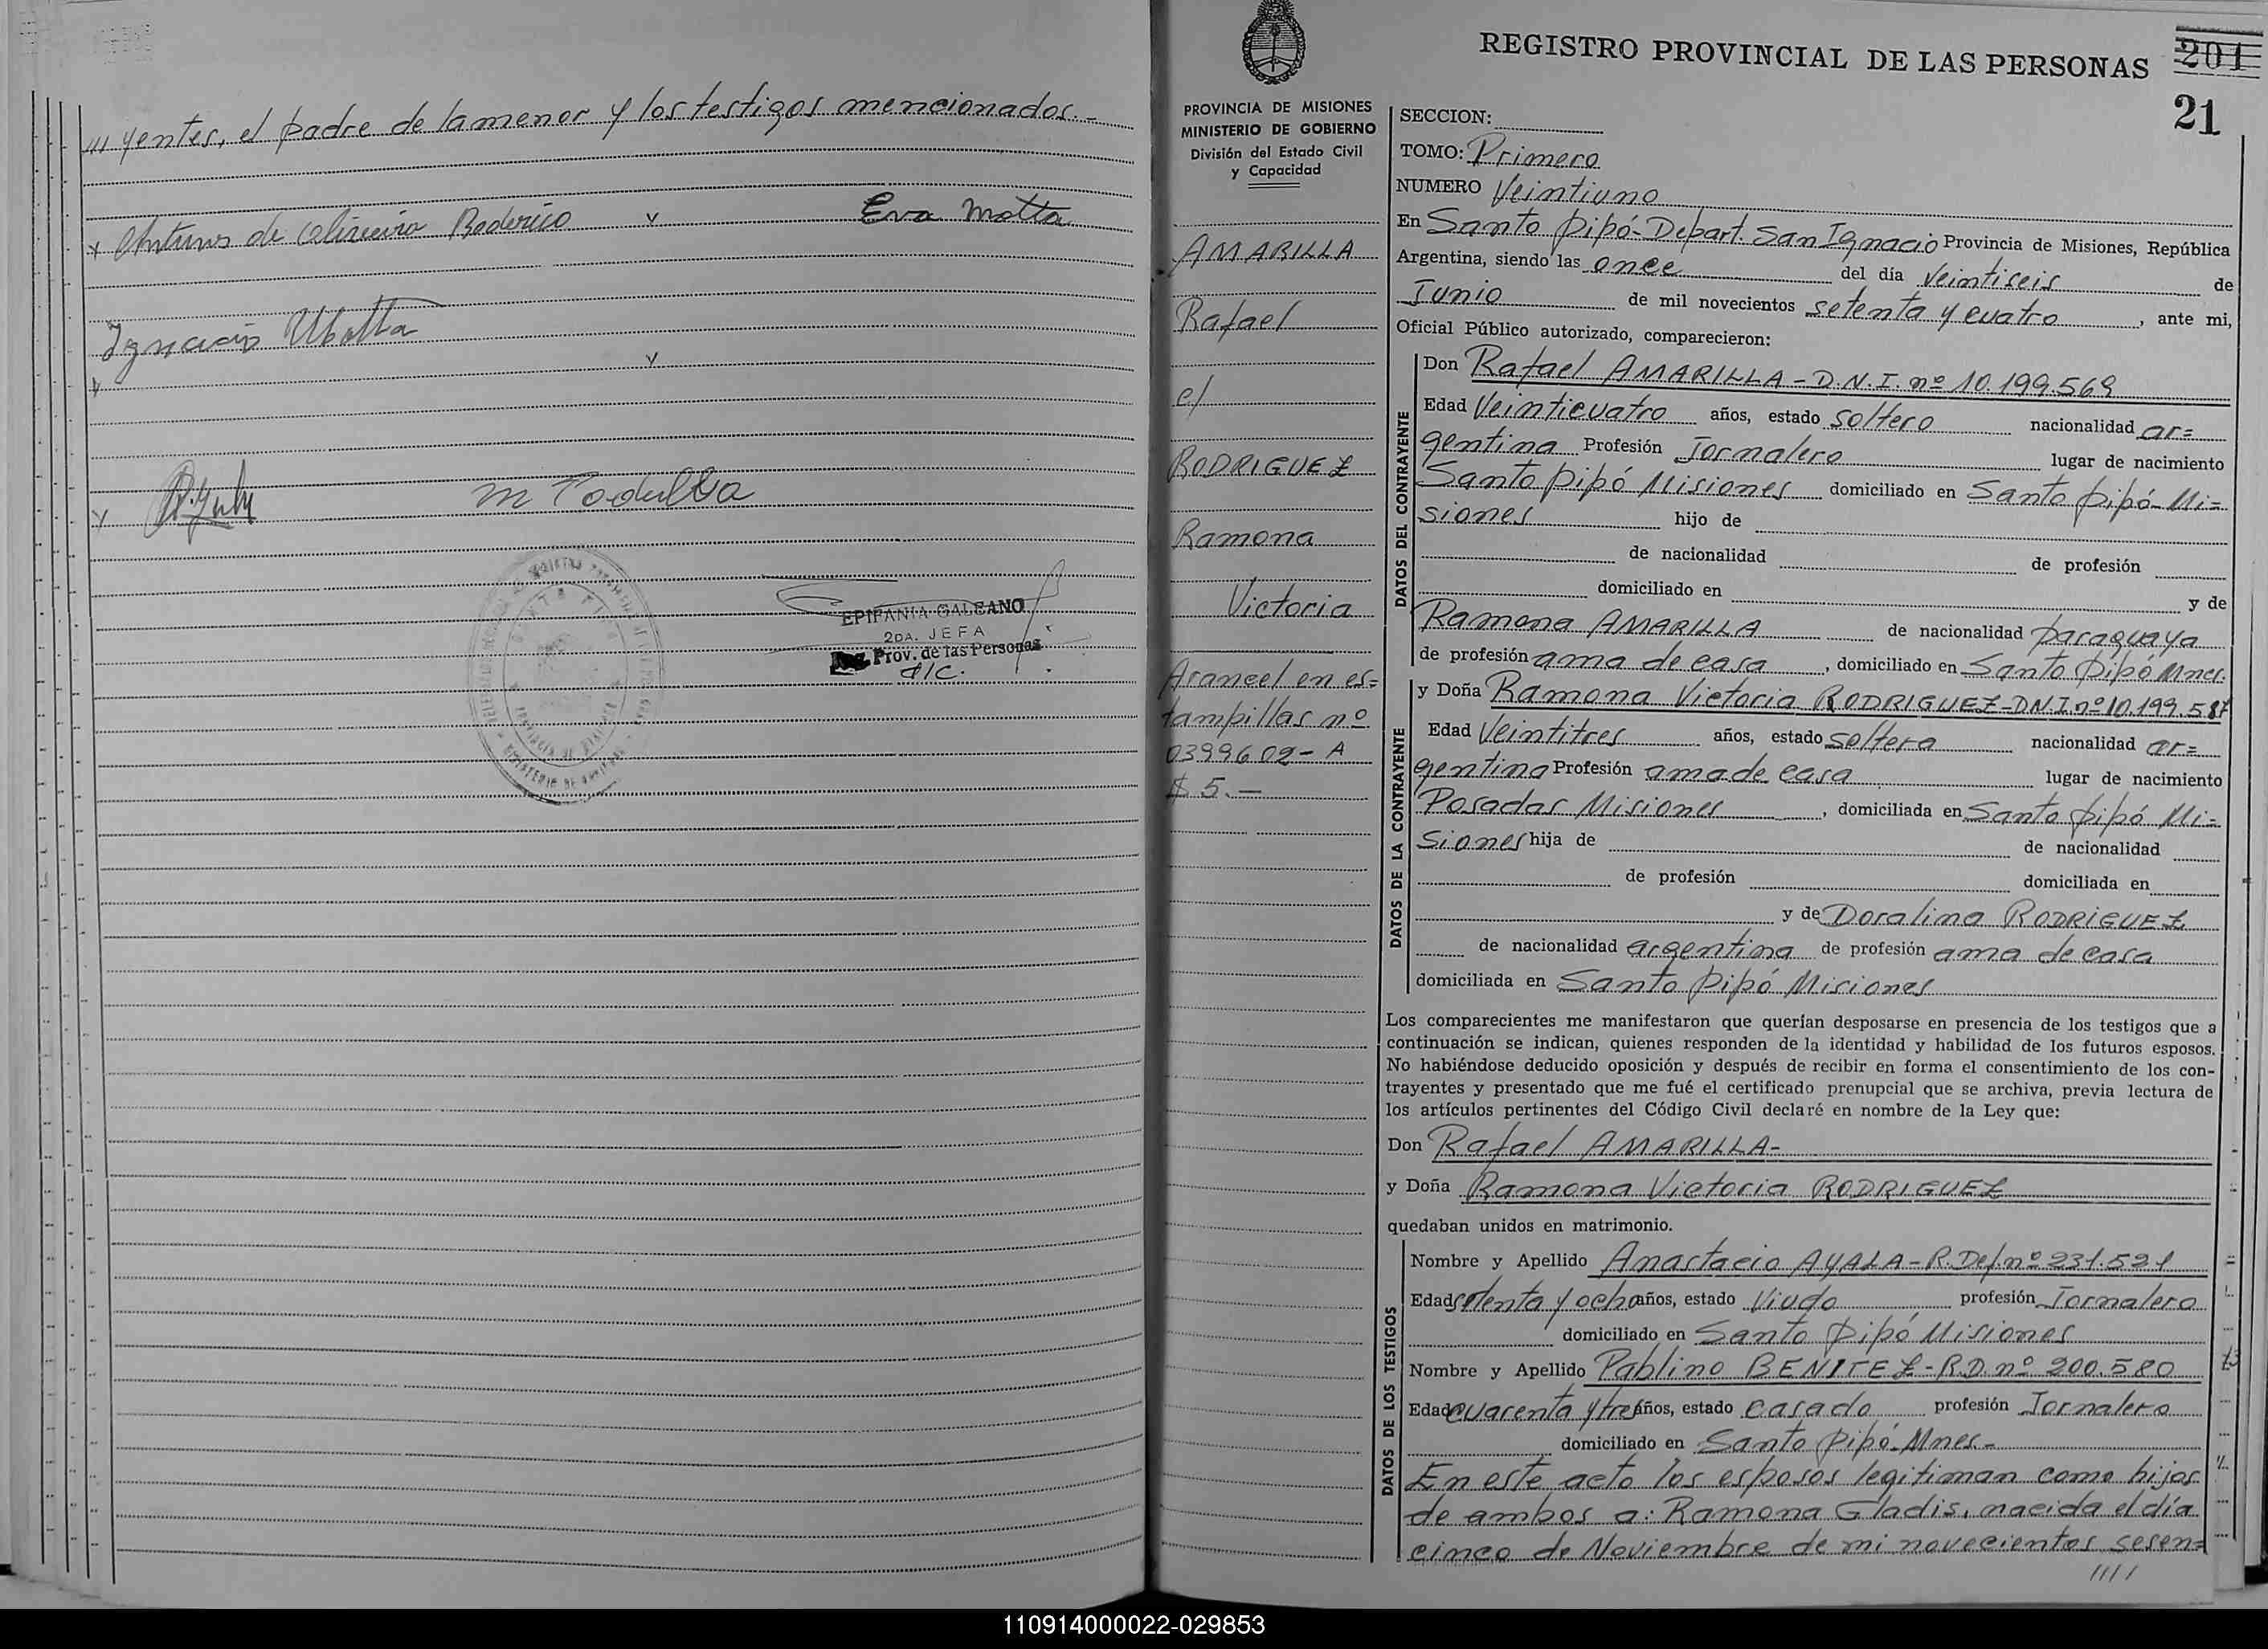 //// yentes, el padre de la menor y los testigos mencionados.-
Eva Motta
Ignacio
EPIFANIA GALEANO
2DA. JEFA
Prov. de las Personas
REGISTRO PROVINCIAL DE LAS PERSONAS
201
21
PROVINCIA DE MISIONES
MINISTERIO DE GOBIERNO
División del Estado Civil
y Capacidad
AMARILLA
Rafael
c/
RODRIGUEZ
Ramona
Victoria
Arancel en es=
tampillas nº
0399602-A
$ 5.-
SECCION:
TOMO: Primero
NUMERO Veintiuno
En Santo Pipó-Depart. San Ignacio Provincia de Misiones, República
Argentina, siendo las once del día Veintiseis de
Junio de mil novecientos setenta y cuatro, ante mi,
Oficial Público autorizado, comparecieron:
DATOS DEL CONTRAYENTE
Don Rafael AMARILLA-D.N.I. nº 10.199.569
Edad Veinticuatro años, estado soltero nacionalidad ar=
gentina Profesión Jornalero lugar de nacimiento
Santo Pipó Misiones domiciliado en Santo Pipó-Mi=
siones hijo de
de nacionalidad de profesión
domiciliado en y de
Ramona AMARILLA de nacionalidad paraguaya
de profesión ama de casa, domiciliado en Santo Pipó Mnes.
DATOS DE LA CONTRAYENTE
y Doña Ramona Victoria RODRIGUEZ-DNI nº 10.199.587
Edad Veintitres años, estado soltera nacionalidad ar=
gentina Profesión ama de casa lugar de nacimiento
Posadas Misiones, domiciliada en Santo Pipó Mi=
siones hija de de nacionalidad
de profesión domiciliada en
y de Doralina RODRIGUEZ
de nacionalidad argentina de profesión ama de casa
domiciliada en Santo Pipó Misiones
Los comparecientes me manifestaron que querían desposarse en presencia de los testigos que a
continuación se indican, quienes responden de la identidad y habilidad de los futuros esposos.
No habiéndose deducido oposición y después de recibir en forma el consentimiento de los con-
trayentes y presentado que me fué el certificado prenupcial que se archiva, previa lectura de
los artículos pertinentes del Código Civil declaré en nombre de la Ley que:
Don Rafael AMARILLA-
y Doña Ramona Victoria RODRIGUEZ
quedaban unidos en matrimonio.
DATOS DE LOS TESTIGOS
Nombre y Apellido Anastacio AYALA-R.Def. nº 231.521
Edad setenta y ocho años, estado Viudo profesión Jornalero
domiciliado en Santo Pipó Misiones
Nombre y Apellido Pablino BENITEZ-R.D. nº 200.580
Edad cuarenta y tres años, estado casado profesión Jornalero
domiciliado en Santo Pipó-Mnes.-
En este acto los esposos legitiman como hijos
de ambos a: Ramona Gladis, nacida el día
cinco de Noviembre de mi novecientos sesen=
////
110914000022-029853